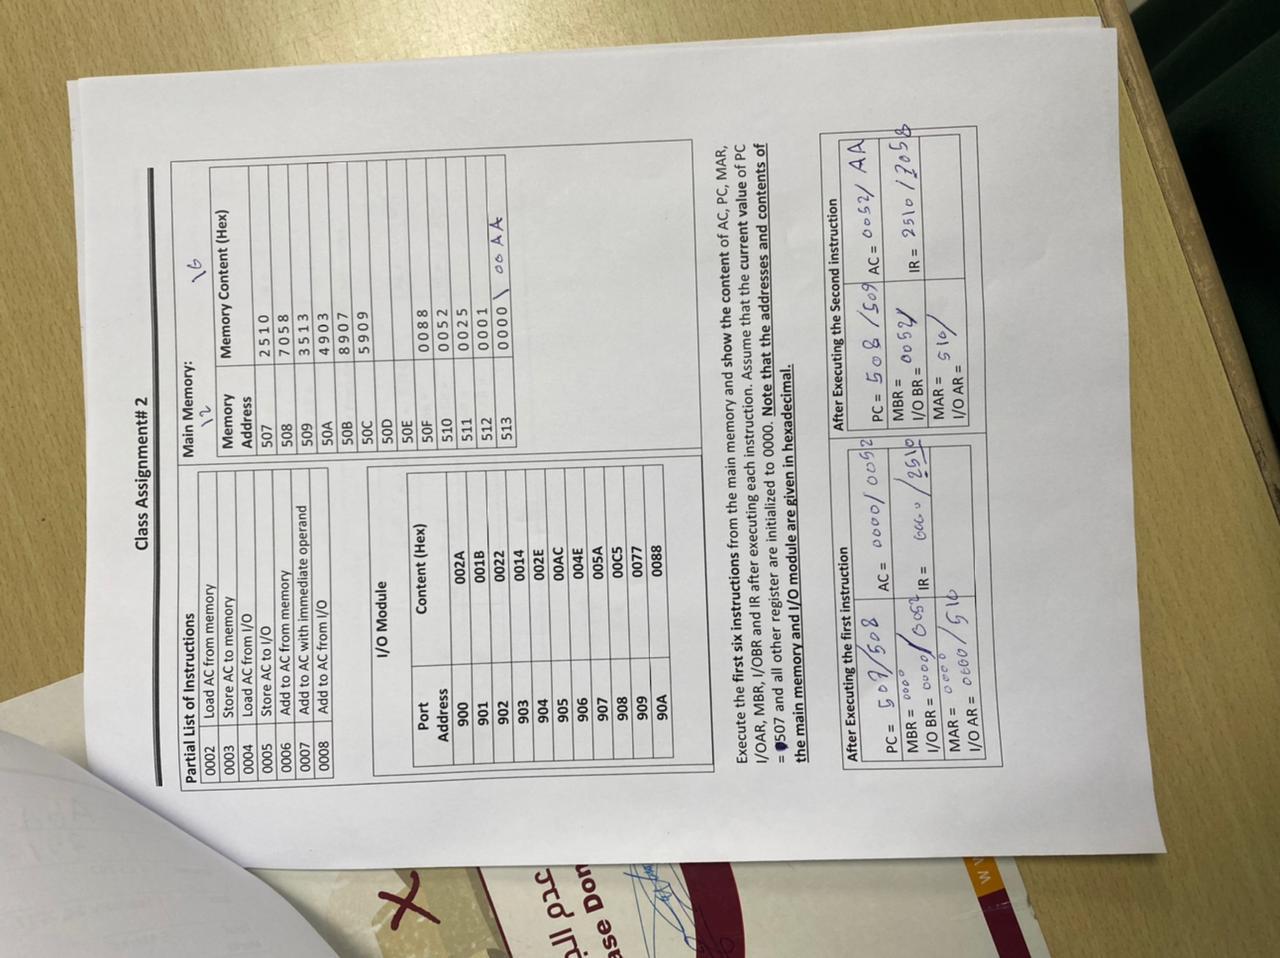 Class Assignment# 2
Partial List of Instructions
0002 Load AC from memory
0003 Store AC to memory
0004 Load AC from I/O
0005 Store AC to I/O
0006 Add to AC from memory
0007 Add to AC with immediate operand
0008 Add to AC from I/O
I/O Module
Port Address Content (Hex)
900 002A
901 001B
902 0022
903 0014
904 002E
905 00AC
906 004E
907 005A
908 00C5
909 0077
90A 0088
Main Memory:
12 16
Memory Address Memory Content (Hex)
507 2 5 1 0
508 7 0 5 8
509 3 5 1 3
50A 4 9 0 3
50B 8 9 0 7
50C 5 9 0 9
50D
50E
50F 0 0 8 8
510 0 0 5 2
511 0 0 2 5
512 0 0 0 1
513 0 0 0 0 \ 00 A A
Execute the first six instructions from the main memory and show the content of AC, PC, MAR,
I/OAR, MBR, I/OBR and IR after executing each instruction. Assume that the current value of PC
= 507 and all other register are initialized to 0000. Note that the addresses and contents of
the main memory and I/O module are given in hexadecimal.
After Executing the first instruction
PC = 507/508 AC = 0000/0052
MBR = 0000/0052 IR = 0000/2510
I/O BR = 0000
MAR = 0000/510
I/O AR = 0000
After Executing the Second instruction
PC = 508/509 AC = 0052/ AA
MBR = 0052/ IR = 2510/7058
I/O BR =
MAR = 510/
I/O AR =
عدم الـ
ase Don